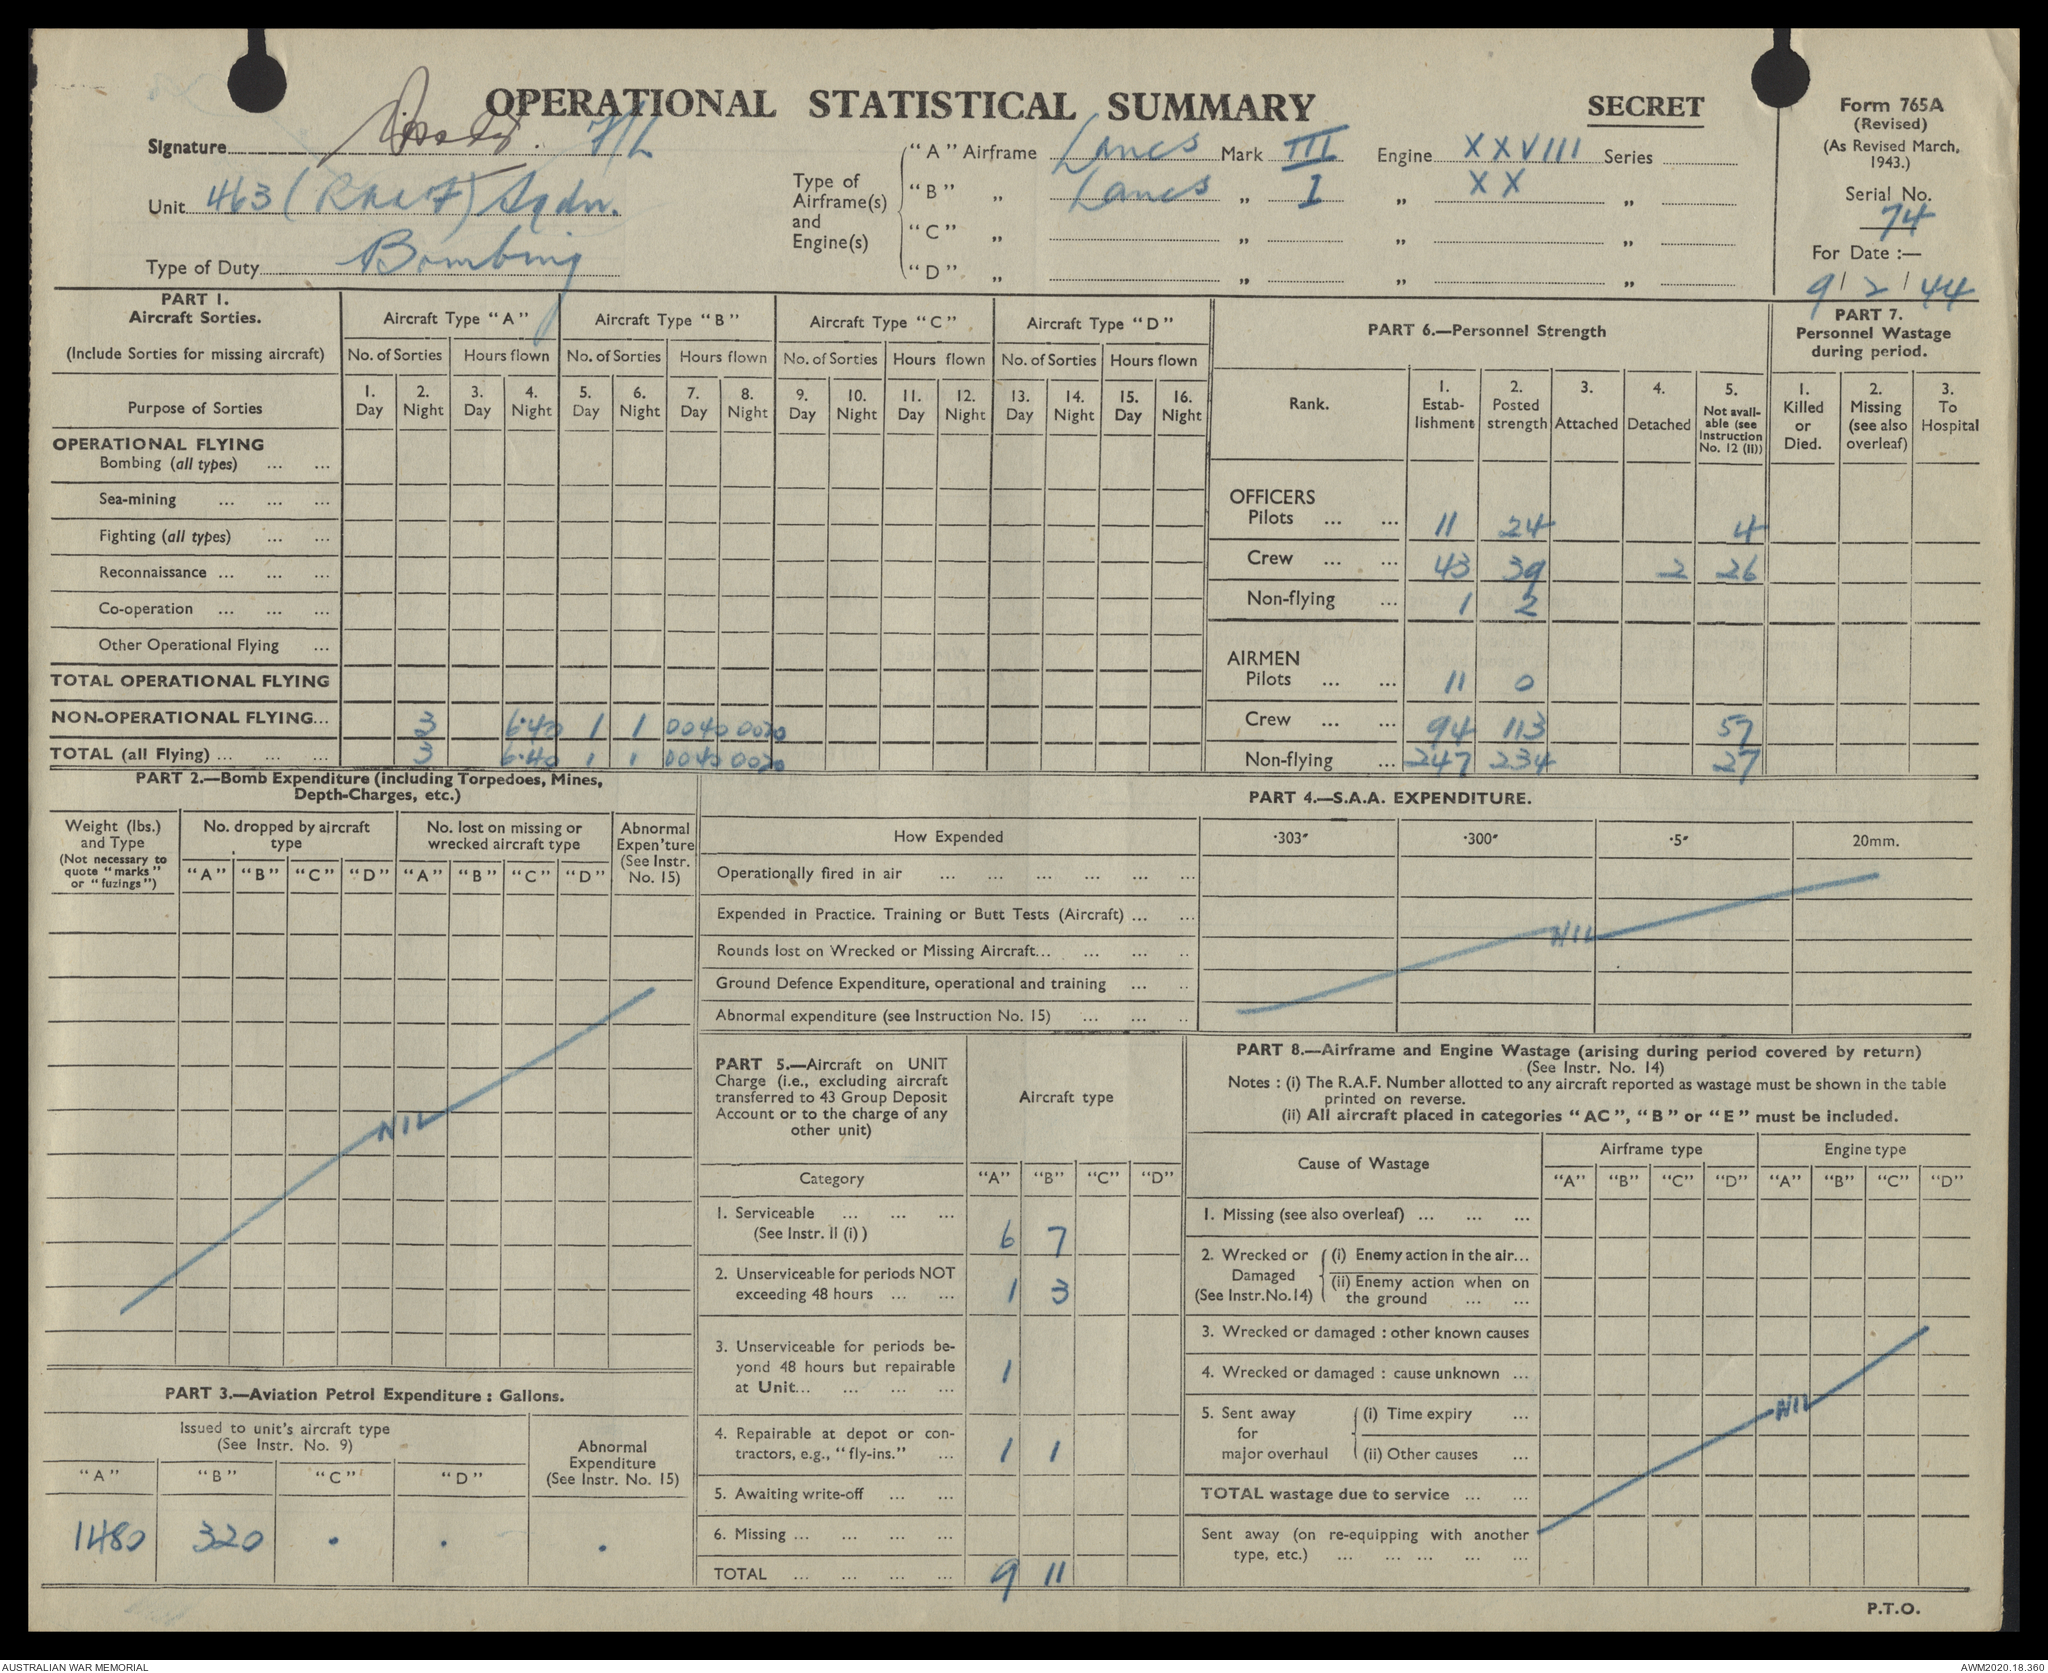 OPERATIONAL STATISTICAL SUMMARY
SECRET
Form 765A
(Revised)
(As Revised March,
1943.)
Serial No.
74
For Date :—
9/2/44
Signature F/L
Unit 463 (RAAF) Sqdn.
Type of Duty Bombing
Type of
Airframe(s)
and
Engine(s)
"A" Airframe Lancs Mark III Engine XXVIII Series
"B" „ Lancs „ I „ XX „
"C" „ „ „ „
"D" „ „ „ „
PART 1.
Aircraft Sorties.
(Include Sorties for missing aircraft)
Purpose of Sorties
Aircraft Type "A" Aircraft Type "B" Aircraft Type "C" Aircraft Type "D"
No. of Sorties Hours flown No. of Sorties Hours flown No. of Sorties Hours flown No. of Sorties Hours flown
1. 2. 3. 4. 5. 6. 7. 8. 9. 10. 11. 12. 13. 14. 15. 16.
Day Night Day Night Day Night Day Night Day Night Day Night Day Night Day Night
OPERATIONAL FLYING
Bombing (all types) ... ...
Sea-mining ... ... ...
Fighting (all types) ... ...
Reconnaissance ... ... ...
Co-operation ... ... ...
Other Operational Flying ...
TOTAL OPERATIONAL FLYING
NON-OPERATIONAL FLYING... 3 6·40 1 1 0040 0020
TOTAL (all Flying) ... ... ... 3 6·40 1 1 0040 0020
PART 6.—Personnel Strength
Rank.
1. Estab-
lishment
2. Posted
strength
3. Attached
4. Detached
5. Not avail-
able (see
Instruction
No. 12 (II))
OFFICERS
Pilots ... ... 11 24 4
Crew ... ... 43 39 2 26
Non-flying ... 1 2
AIRMEN
Pilots ... ... 11 0
Crew ... ... 94 113 57
Non-flying ... 247 234 27
PART 7.
Personnel Wastage
during period.
1. Killed
or
Died.
2. Missing
(see also
overleaf)
3. To
Hospital
PART 2.—Bomb Expenditure (including Torpedoes, Mines,
Depth-Charges, etc.)
Weight (lbs.)
and Type
(Not necessary to
quote "marks"
or "fuzings")
No. dropped by aircraft
type
No. lost on missing or
wrecked aircraft type
Abnormal
Expen'ture
(See Instr.
No. 15)
"A" "B" "C" "D" "A" "B" "C" "D"
NIL
PART 3.—Aviation Petrol Expenditure : Gallons.
Issued to unit's aircraft type
(See Instr. No. 9)
Abnormal
Expenditure
(See Instr. No. 15)
"A" "B" "C" "D"
1480 320 . . .
PART 4.—S.A.A. EXPENDITURE.
How Expended ·303" ·300" ·5" 20mm.
Operationally fired in air ... ... ... ... ... ...
Expended in Practice. Training or Butt Tests (Aircraft) ... ...
Rounds lost on Wrecked or Missing Aircraft... ... ... ..
Ground Defence Expenditure, operational and training ... ..
Abnormal expenditure (see Instruction No. 15) ... ... ..
NIL
PART 5.—Aircraft on UNIT
Charge (i.e., excluding aircraft
transferred to 43 Group Deposit
Account or to the charge of any
other unit)
Aircraft type
Category "A" "B" "C" "D"
1. Serviceable ... ... ...
(See Instr. II (i) ) 6 7
2. Unserviceable for periods NOT
exceeding 48 hours ... ... 1 3
3. Unserviceable for periods be-
yond 48 hours but repairable
at Unit... ... ... ... 1
4. Repairable at depot or con-
tractors, e.g., "fly-ins." ... 1 1
5. Awaiting write-off ... ...
6. Missing ... ... ... ...
TOTAL ... ... ... ... 9 11
PART 8.—Airframe and Engine Wastage (arising during period covered by return)
(See Instr. No. 14)
Notes : (i) The R.A.F. Number allotted to any aircraft reported as wastage must be shown in the table
printed on reverse.
(ii) All aircraft placed in categories "AC", "B" or "E" must be included.
Cause of Wastage
Airframe type Engine type
"A" "B" "C" "D" "A" "B" "C" "D"
1. Missing (see also overleaf) ... ... ...
2. Wrecked or
Damaged
(See Instr.No.14)
(i) Enemy action in the air...
(ii) Enemy action when on
the ground ... ...
3. Wrecked or damaged : other known causes
4. Wrecked or damaged : cause unknown ...
5. Sent away
for
major overhaul
(i) Time expiry ...
(ii) Other causes ...
TOTAL wastage due to service ... ...
Sent away (on re-equipping with another
type, etc.) ... ... ... ... ...
NIL
P.T.O.
AUSTRALIAN WAR MEMORIAL
AWM2020.18.360